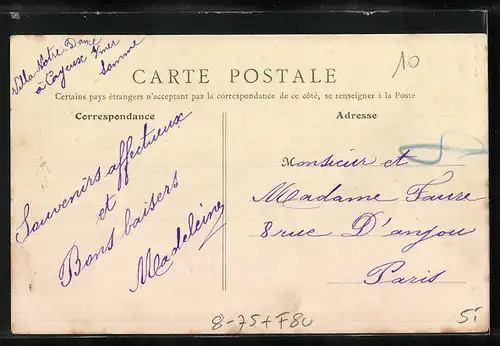 Villa Notre Dame
a Cayeux s/mer
Somme
10
CARTE POSTALE
Certains pays étrangers n'acceptant pas la correspondance de ce côté, se renseigner à la Poste
Correspondance
Adresse
Souvenirs affectueux
et
Bons baisers
Madeleine
Monsieur et
Madame Faure
8 rue D'anjou
Paris
8-75+F80
5,